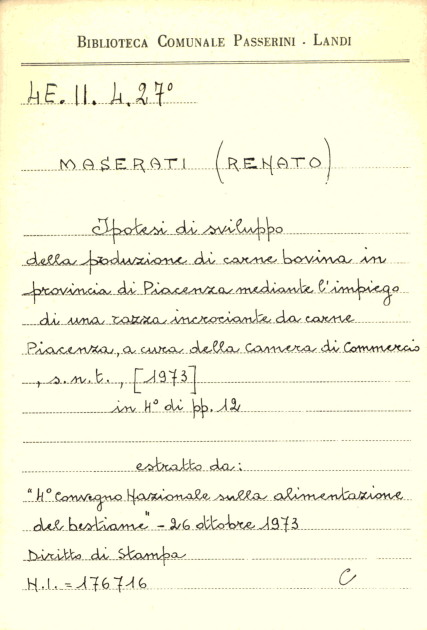 BIBLIOTECA COMUNALE PASSERINI - LANDI
4E. II. 4. 27°
MASERATI (RENATO)
Ipotesi di sviluppo
della poduzione di carne bovina in
provincia di Piacenza mediante l'impiego
di una razza incrociante da carne
Piacenza, a cura della Camera di Commercio
, s.n.t., [1973]
in 4° di pp. 12
estratto da:
"4° Convegno Nazionale sulla alimentazione
del bestiame" - 26 ottobre 1973
Diritto di Stampa
N.I. = 176716 C